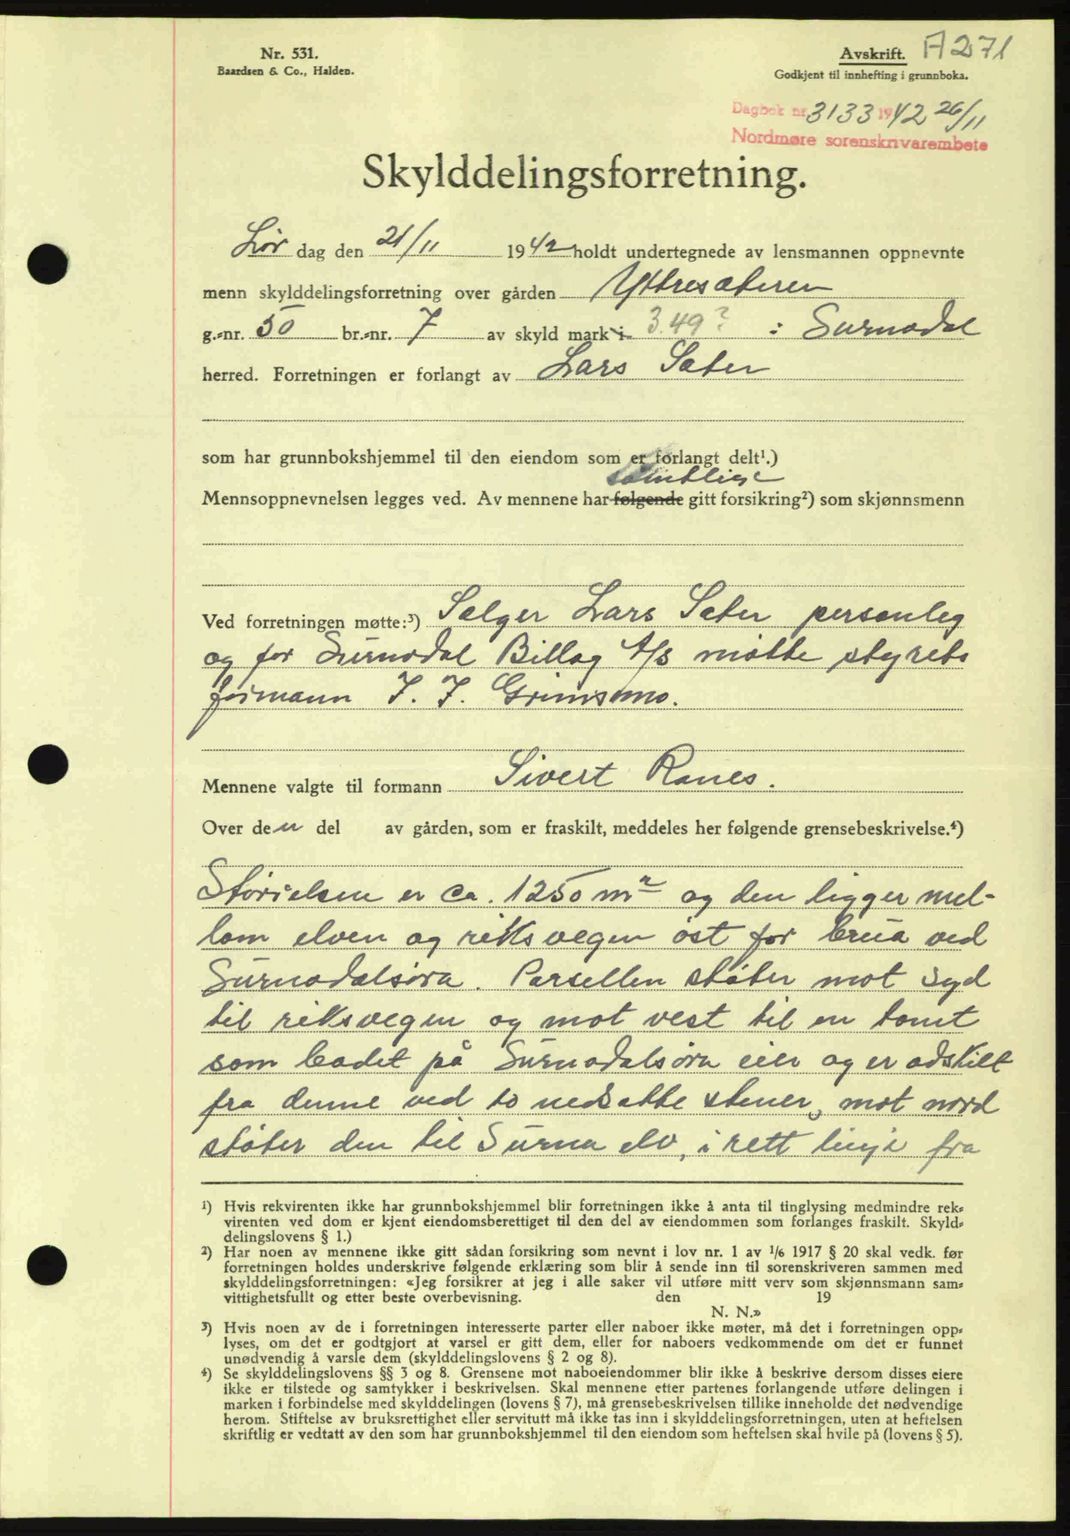 Nr. 531.
Baardsen & Co., Halden.
Avskrift. A271
Godkjent til innhefting i grunnboka.
Dagbok nr. 3133 1942 26/11
Nordmøre sorenskrivarembete
Skylddelingsforretning.
Lør dag den 21/11 1942 holdt undertegnede av lensmannen oppnevnte
menn skylddelingsforretning over gården Yttresæteren
g.-nr. 50 br.-nr. 7 av skyld mark i 3.49? : Surnadal
herred. Forretningen er forlangt av Lars Sæter
som har grunnbokshjemmel til den eiendom som er forlangt delt¹.)
samtlige
Mennsoppnevnelsen legges ved. Av mennene har følgende gitt forsikring²) som skjønnsmenn
Ved forretningen møtte:³) Selger Lars Sæter personleg
og for Surnadal Billag A/S møtte styrets
formann J. J. Grimsmo.
Mennene valgte til formann Sivert Ranes.
Over den del av gården, som er fraskilt, meddeles her følgende grensebeskrivelse.⁴)
Størrelsen er ca. 1250 m² og den ligger mel-
lom elven og riksvegen øst for brua ved
Surnadalsøra. Parsellen støter mot syd
til riksvegen og mot vest til en tomt
som badet på Surnadalsøra eier og er adskilt
fra denne ved to nedsatte stener, mot nord
støter den til Surna elv, i rett linje fra
¹) Hvis rekvirenten ikke har grunnbokshjemmel blir forretningen ikke å anta til tinglysing medmindre rek-
virenten ved dom er kjent eiendomsberettiget til den del av eiendommen som forlanges fraskilt. Skyld-
delingslovens § 1.)
²) Har noen av mennene ikke gitt sådan forsikring som nevnt i lov nr. 1 av 1/6 1917 § 20 skal vedk. før
forretningen holdes underskrive følgende erklæring som blir å sende inn til sorenskriveren sammen med
skylddelingsforretningen: «Jeg forsikrer at jeg i alle saker vil utføre mitt verv som skjønnsmann sam-
vittighetsfullt og etter beste overbevisning. den 19
N. N.»
³) Hvis noen av de i forretningen interesserte parter eller naboer ikke møter, må det i forretningen opp-
lyses, om det er godtgjort at varsel er gitt dem, eller for naboers vedkommende om det er funnet
unødvendig å varsle dem (skylddelingslovens § 2 og 8).
⁴) Se skylddelingslovens §§ 3 og 8. Grensene mot naboeiendommer blir ikke å beskrive dersom disses eiere
ikke er tilstede og samtykker i beskrivelsen. Skal mennene etter partenes forlangende utføre delingen i
marken i forbindelse med skylddelingen (lovens § 7), må grensebeskrivelsen tillike inneholde det nødvendige
herom. Stiftelse av bruksrettighet eller servitutt må ikke tas inn i skylddelingsforretningen, uten at heftelsen
skriftlig er vedtatt av den som har grunnbokshjemmel til den eiendom som heftelsen skal hvile på (lovens § 5).